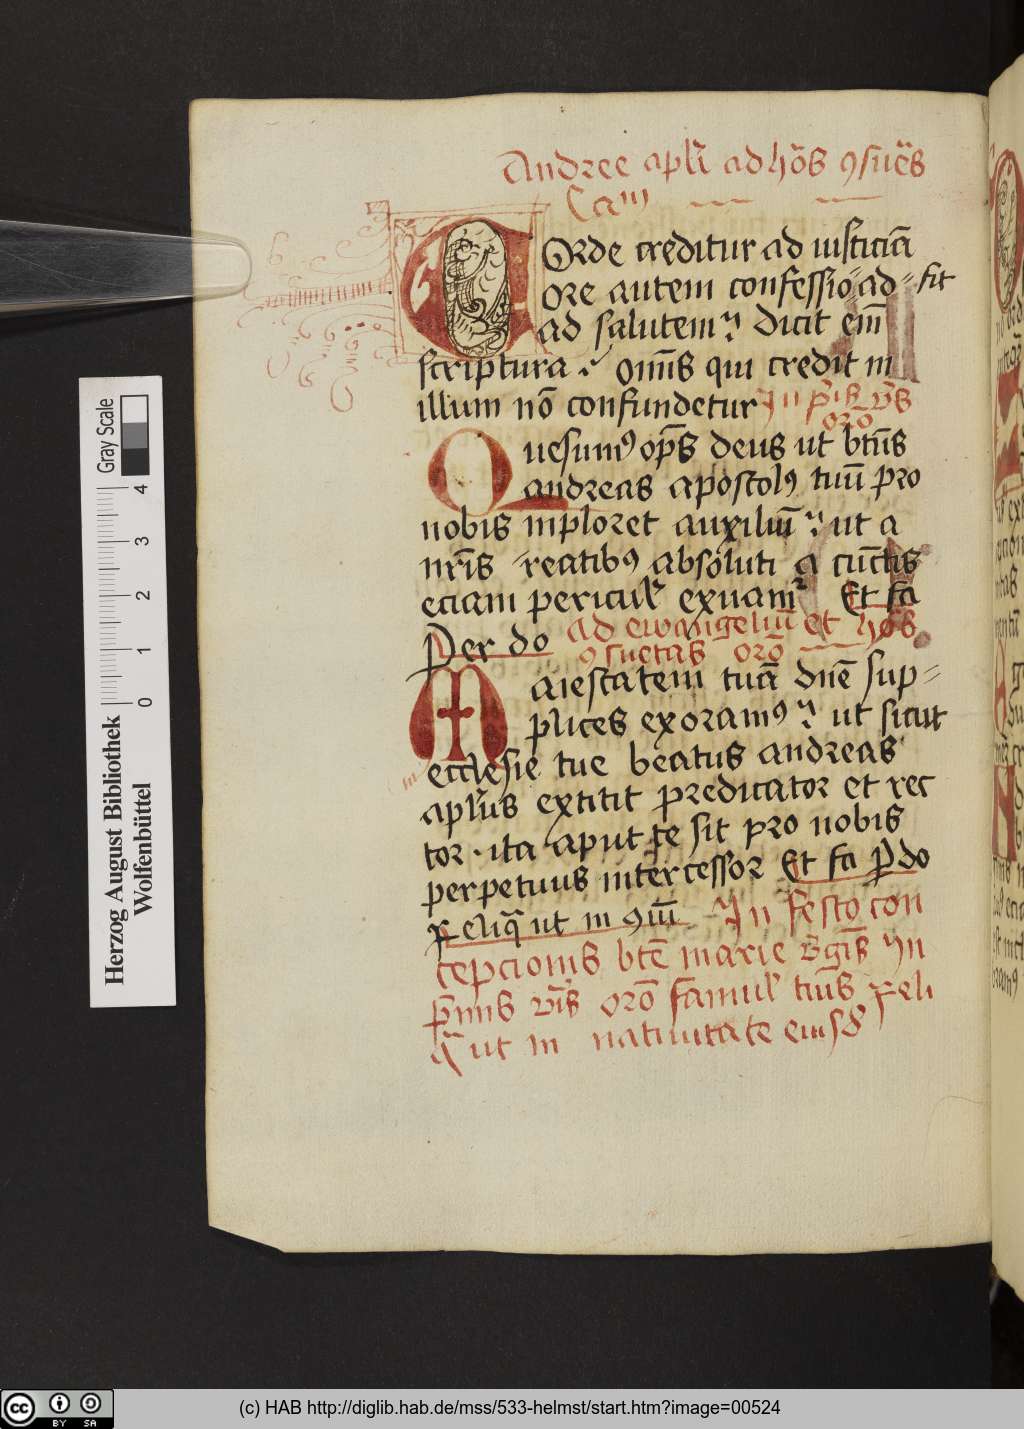 Andree apłi ad hōs ꝯsuēs
Cam
Corde creditur ad iusticiā
ore autem confessio ad = fit
ad salutem dicit em̄
scriptura omīs qui credit in
illum nō confundetur In pͥis vͤis
orō
Quesumꝰ op̄s deus ut btūs
andreas apostolꝰ tuū pro
nobis inploret auxiliū ut a
nrīs reatibꝰ absoluti a cūctis
eciam pericul exuamͬ Et fa
Per do ad ewangeliū et hōs
ꝯsuetas orō
Maiestatem tuā dn̄e sup=
plices exoramꝰ ut sicut
ecclesie tue beatus andreas
aplūs extitit predicator et rec
tor · ita aput te sit pro nobis
perpetuus intercessor Et fa p do
Reliq̄ ut in ꝯiū In festo con
cepcionis btē marie v̄gīs In
pͥmis vͤis orō famul tuis reli
q̄ ut in natiuitate eiusd
Herzog August Bibliothek
Wolfenbüttel
0 1 2 3 4
Gray Scale
cc BY SA
(c) HAB http://diglib.hab.de/mss/533-helmst/start.htm?image=00524